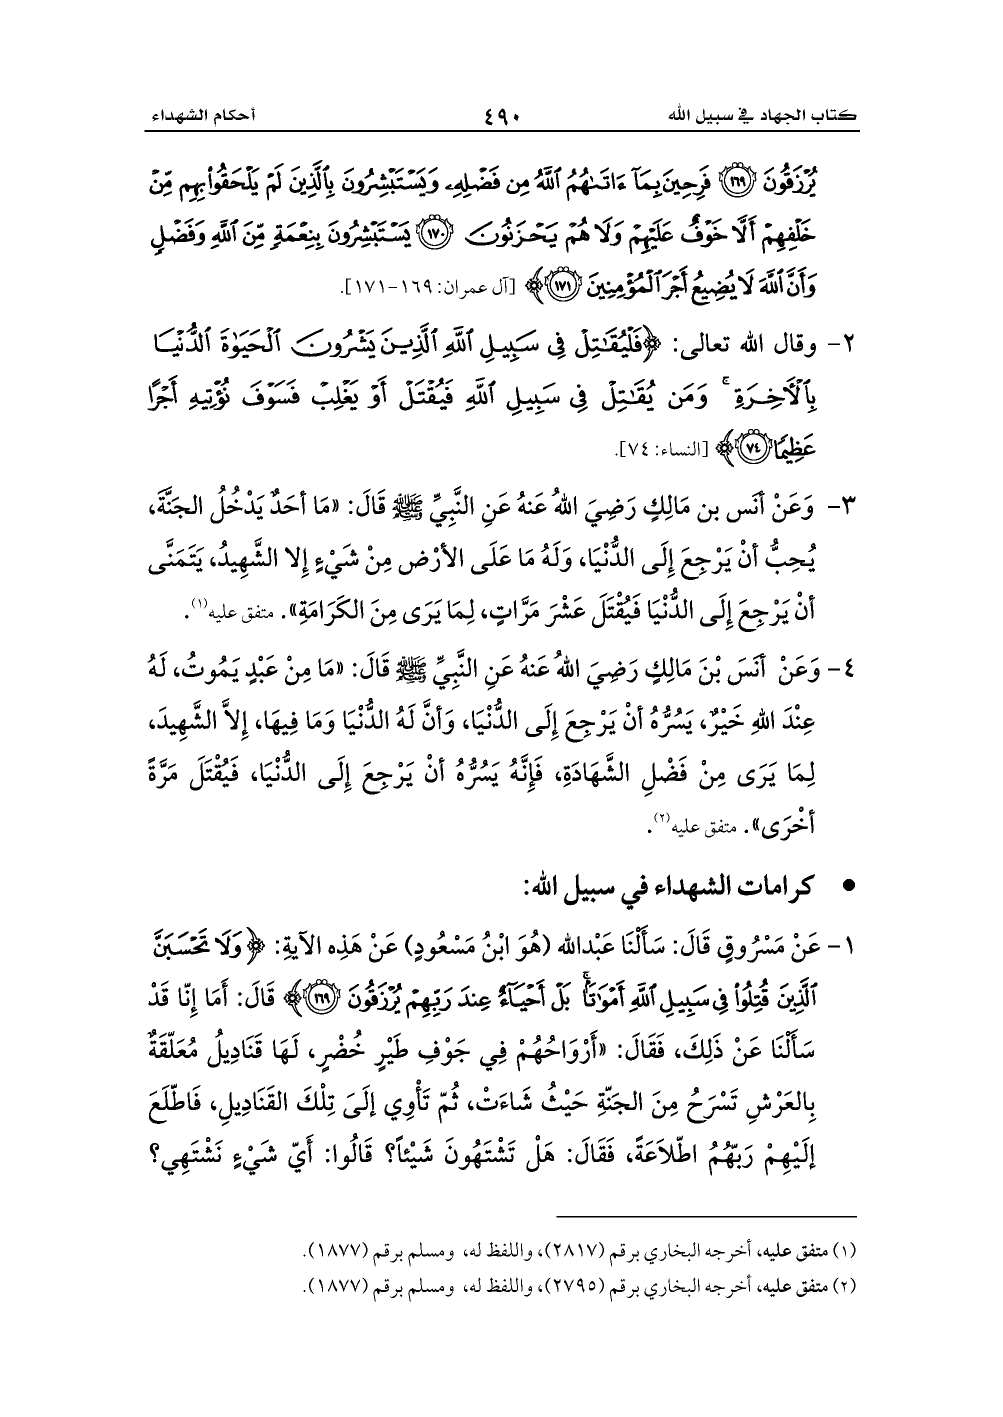 كتاب الجهاد في سبيل الله ٤٩٠ أحكام الشهداء
يُرْزَقُونَ ﴿١٦٩﴾ فَرِحِينَ بِمَآ ءَاتَىٰهُمُ ٱللَّهُ مِن فَضْلِهِۦ وَيَسْتَبْشِرُونَ بِٱلَّذِينَ لَمْ يَلْحَقُوا۟ بِهِم مِّنْ
خَلْفِهِمْ أَلَّا خَوْفٌ عَلَيْهِمْ وَلَا هُمْ يَحْزَنُونَ ﴿١٧٠﴾ يَسْتَبْشِرُونَ بِنِعْمَةٍ مِّنَ ٱللَّهِ وَفَضْلٍ
وَأَنَّ ٱللَّهَ لَا يُضِيعُ أَجْرَ ٱلْمُؤْمِنِينَ ﴿١٧١﴾﴾ [آل عمران: ١٦٩-١٧١].
٢- وقال الله تعالى: ﴿فَلْيُقَٰتِلْ فِى سَبِيلِ ٱللَّهِ ٱلَّذِينَ يَشْرُونَ ٱلْحَيَوٰةَ ٱلدُّنْيَا
بِٱلْءَاخِرَةِ ۚ وَمَن يُقَٰتِلْ فِى سَبِيلِ ٱللَّهِ فَيُقْتَلْ أَوْ يَغْلِبْ فَسَوْفَ نُؤْتِيهِ أَجْرًا
عَظِيمًا ﴿٧٤﴾﴾ [النساء: ٧٤].
٣- وَعَنْ أنَس بن مَالِكٍ رَضِيَ اللهُ عَنهُ عَنِ النَّبِيِّ ﷺ قَالَ: «مَا أحَدٌ يَدْخُلُ الجَنَّةَ،
يُحِبُّ أنْ يَرْجِعَ إلَى الدُّنْيَا، وَلَهُ مَا عَلَى الأرْض مِنْ شَيْءٍ إلا الشَّهِيدُ، يَتَمَنَّى
أنْ يَرْجِعَ إلَى الدُّنْيَا فَيُقْتَلَ عَشْرَ مَرَّاتٍ، لِمَا يَرَى مِنَ الكَرَامَةِ». متفق عليه(١).
٤- وَعَنْ أنَسَ بْنَ مَالِكٍ رَضِيَ اللهُ عَنهُ عَنِ النَّبِيِّ ﷺ قَالَ: «مَا مِنْ عَبْدٍ يَمُوتُ، لَهُ
عِنْدَ اللهِ خَيْرٌ، يَسُرُّهُ أنْ يَرْجِعَ إلَى الدُّنْيَا، وَأنَّ لَهُ الدُّنْيَا وَمَا فِيهَا، إلاَّ الشَّهِيدَ،
لِمَا يَرَى مِنْ فَضْلِ الشَّهَادَةِ، فَإنَّهُ يَسُرُّهُ أنْ يَرْجِعَ إلَى الدُّنْيَا، فَيُقْتَلَ مَرَّةً
أخْرَى». متفق عليه(٢).
● كرامات الشهداء في سبيل الله:
١- عَنْ مَسْرُوقٍ قَالَ: سَألْنَا عَبْدالله (هُوَ ابْنُ مَسْعُودٍ) عَنْ هَذِهِ الآيةِ: ﴿وَلَا تَحْسَبَنَّ
ٱلَّذِينَ قُتِلُوا۟ فِى سَبِيلِ ٱللَّهِ أَمْوَٰتًۢا ۚ بَلْ أَحْيَآءٌ عِندَ رَبِّهِمْ يُرْزَقُونَ ﴿١٦٩﴾﴾ قَالَ: أَمَا إنّا قَدْ
سَألْنَا عَنْ ذَلِكَ، فَقَالَ: «أَرْوَاحُهُمْ فِي جَوْفِ طَيْرٍ خُضْرٍ، لَهَا قَنَادِيلُ مُعَلّقَةٌ
بِالعَرْشِ تَسْرَحُ مِنَ الجَنّةِ حَيْثُ شَاءَتْ، ثُمّ تَأْوِي إلَىَ تِلْكَ القَنَادِيلِ، فَاطّلَعَ
إلَيْهِمْ رَبّهُمُ اطّلاَعَةً، فَقَالَ: هَلْ تَشْتَهُونَ شَيْئاً؟ قَالُوا: أَيّ شَيْءٍ نَشْتَهِي؟
(١) متفق عليه، أخرجه البخاري برقم (٢٨١٧)، واللفظ له، ومسلم برقم (١٨٧٧).
(٢) متفق عليه، أخرجه البخاري برقم (٢٧٩٥)، واللفظ له، ومسلم برقم (١٨٧٧).